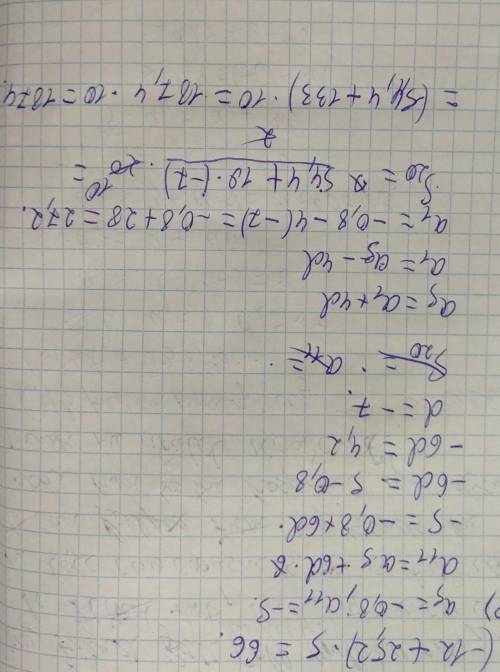 (-12 + 25,2) · 5 = 66
a₅ = -0,8; a₁₁ = -5.
a₁₁ = a₅ + 6d
-5 = -0,8 + 6d.
-6d = 5 - 0,8
-6d = 4,2
d = -7
S₂₀ = · a₁₁ =
a₅ = a₁ + 4d
a₁ = a₅ - 4d
a₁ = -0,8 - 4(-7) = -0,8 + 28 = 27,2.
S₂₀ = 54,4 + 19 · (-7) / 2 · 20 10 =
= (54,4 + 133) · 10 = 187,4 · 10 = 1874.